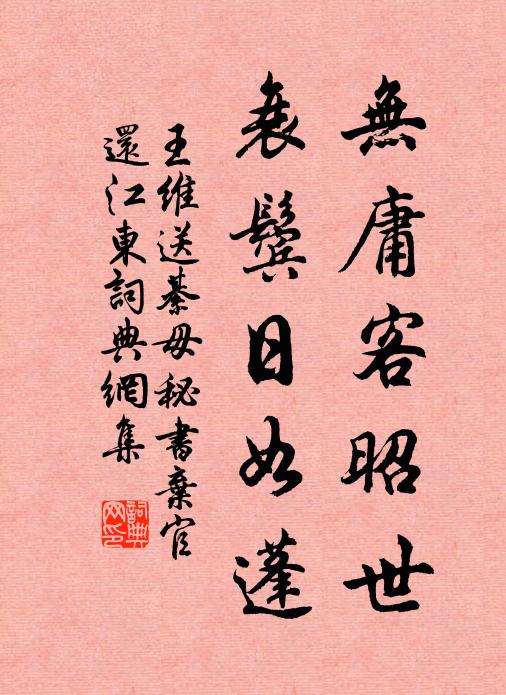 無庸客昭世
衰鬢日如蓬
王維送綦毋秘書棄官
還江東詞典網集
詞典
网印